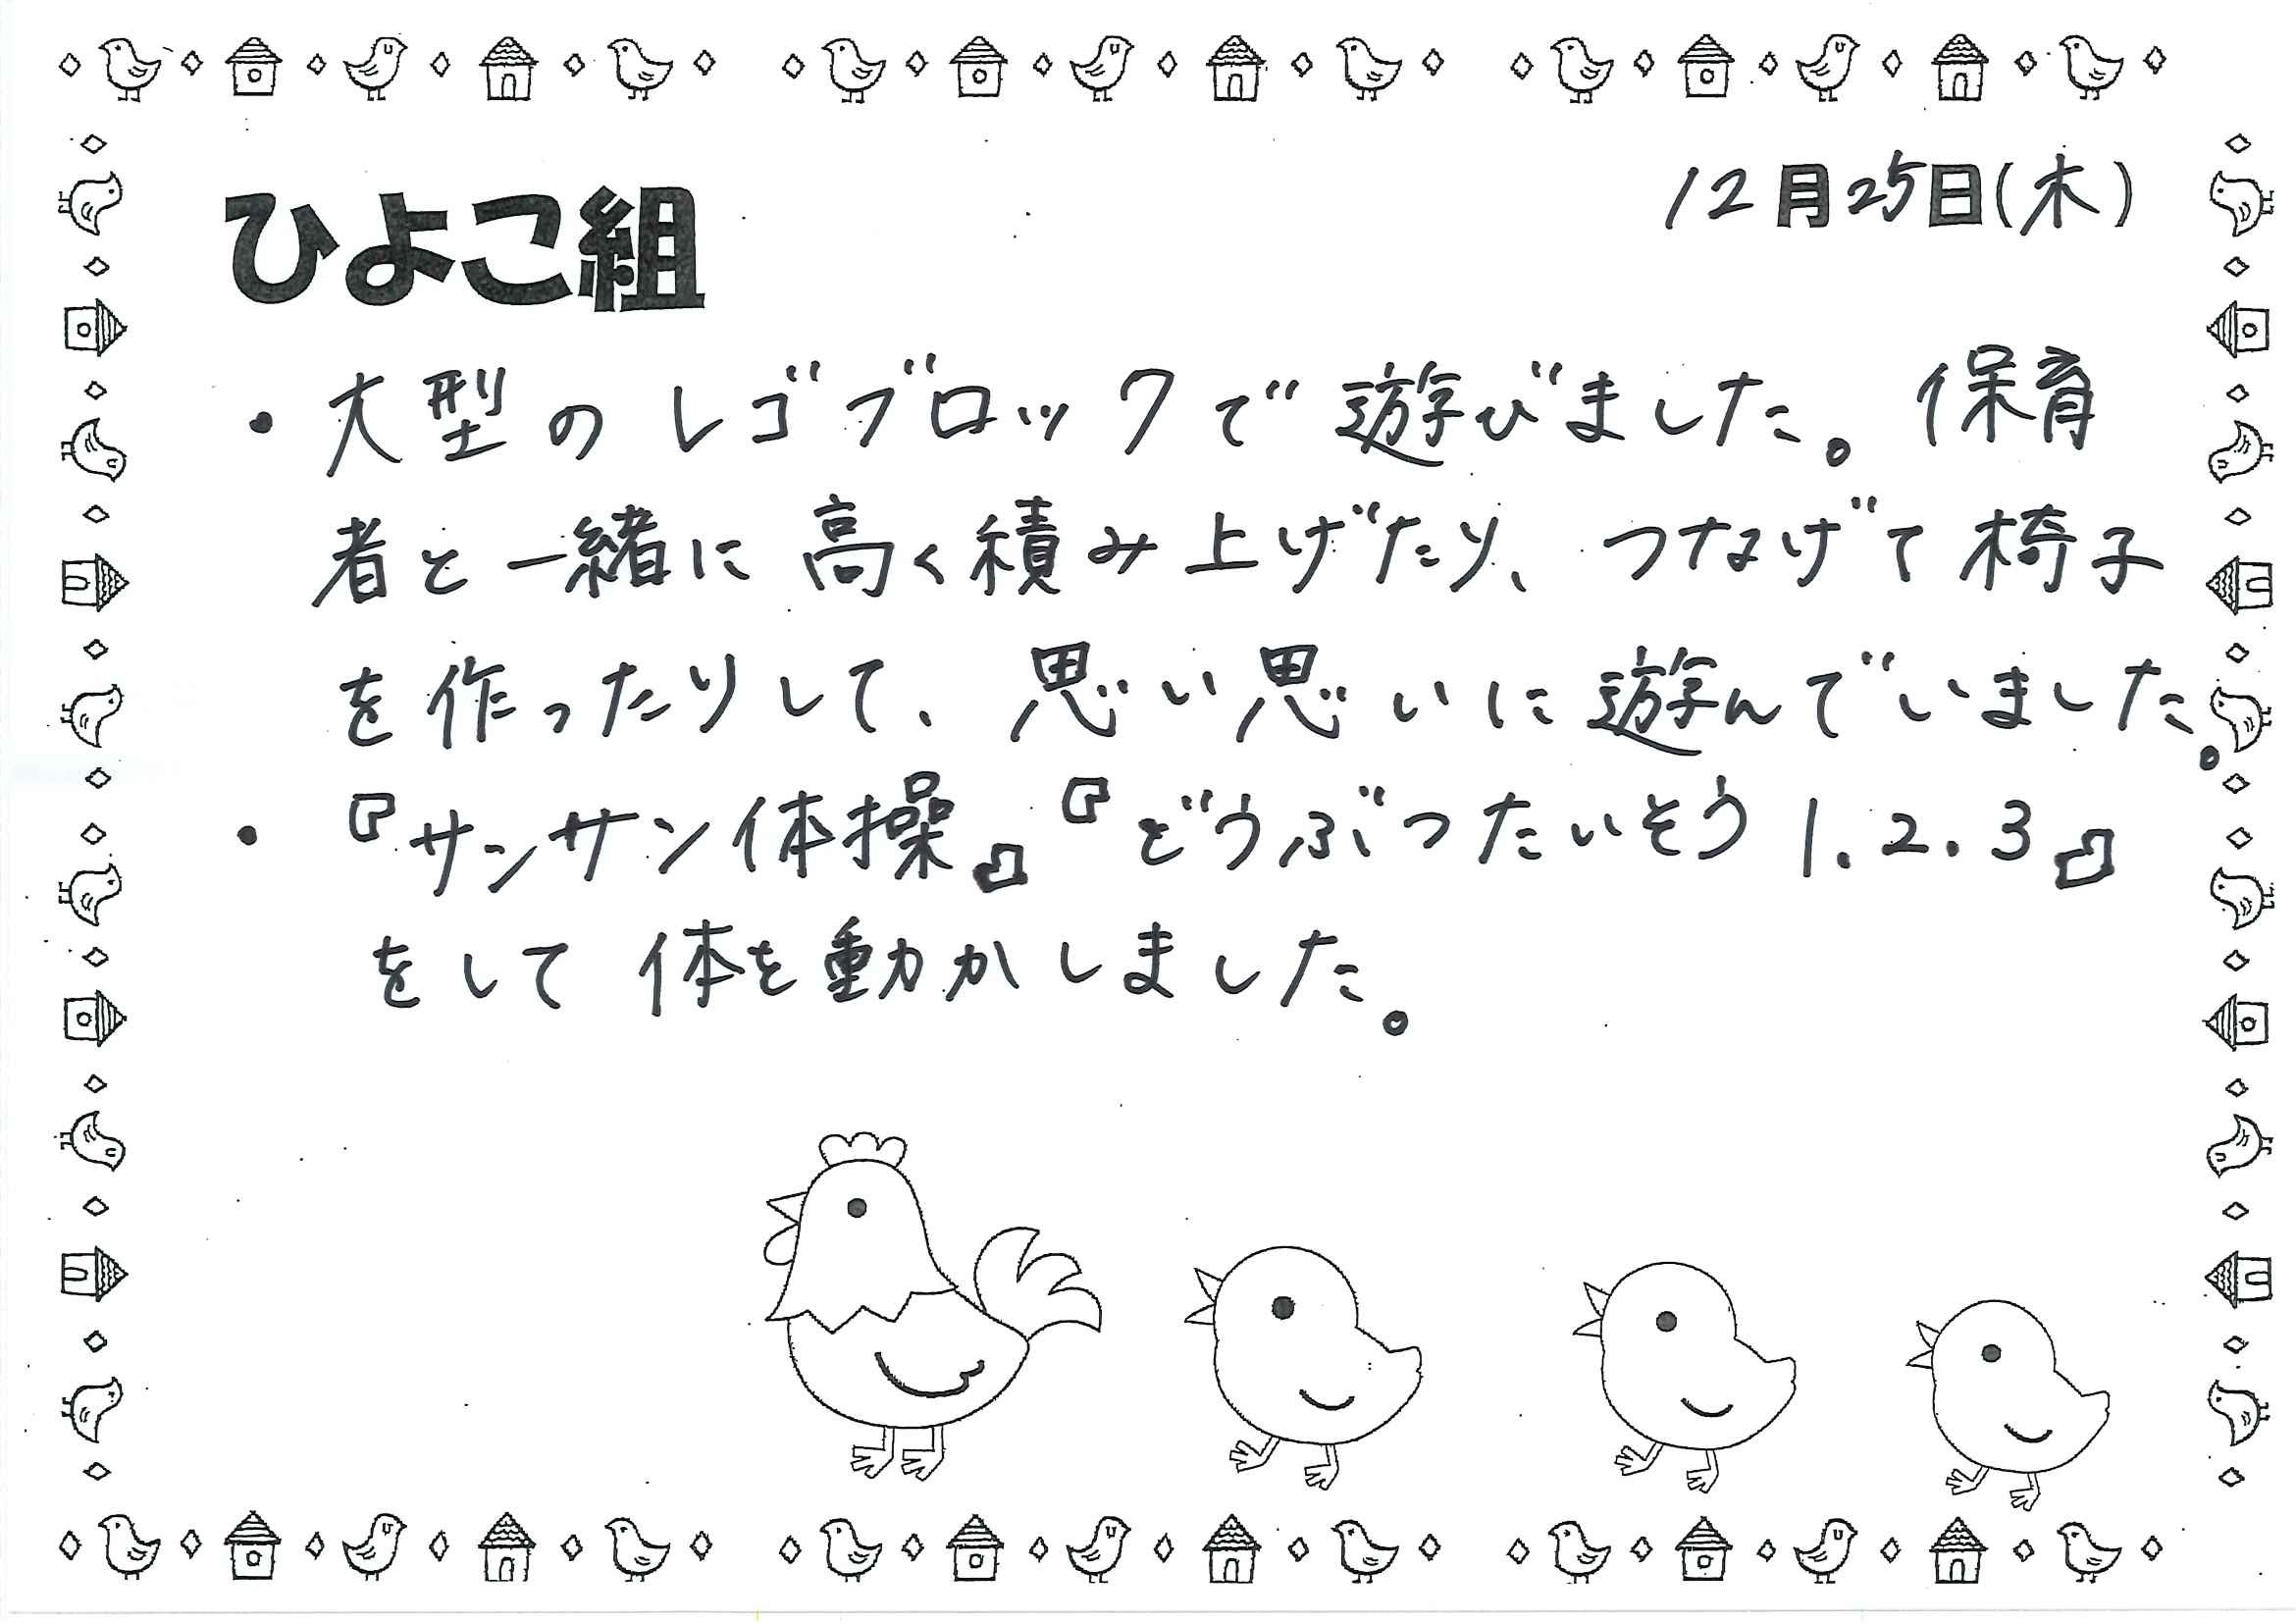 12月25日(木)
ひよこ組
・大型のレゴブロックで遊びました。保育
者と一緒に高く積み上げたり、つなげて椅子
を作ったりして、思い思いに遊んでいました。
・『サンサン体操』『どうぶつたいそう1.2.3』
をして体を動かしました。